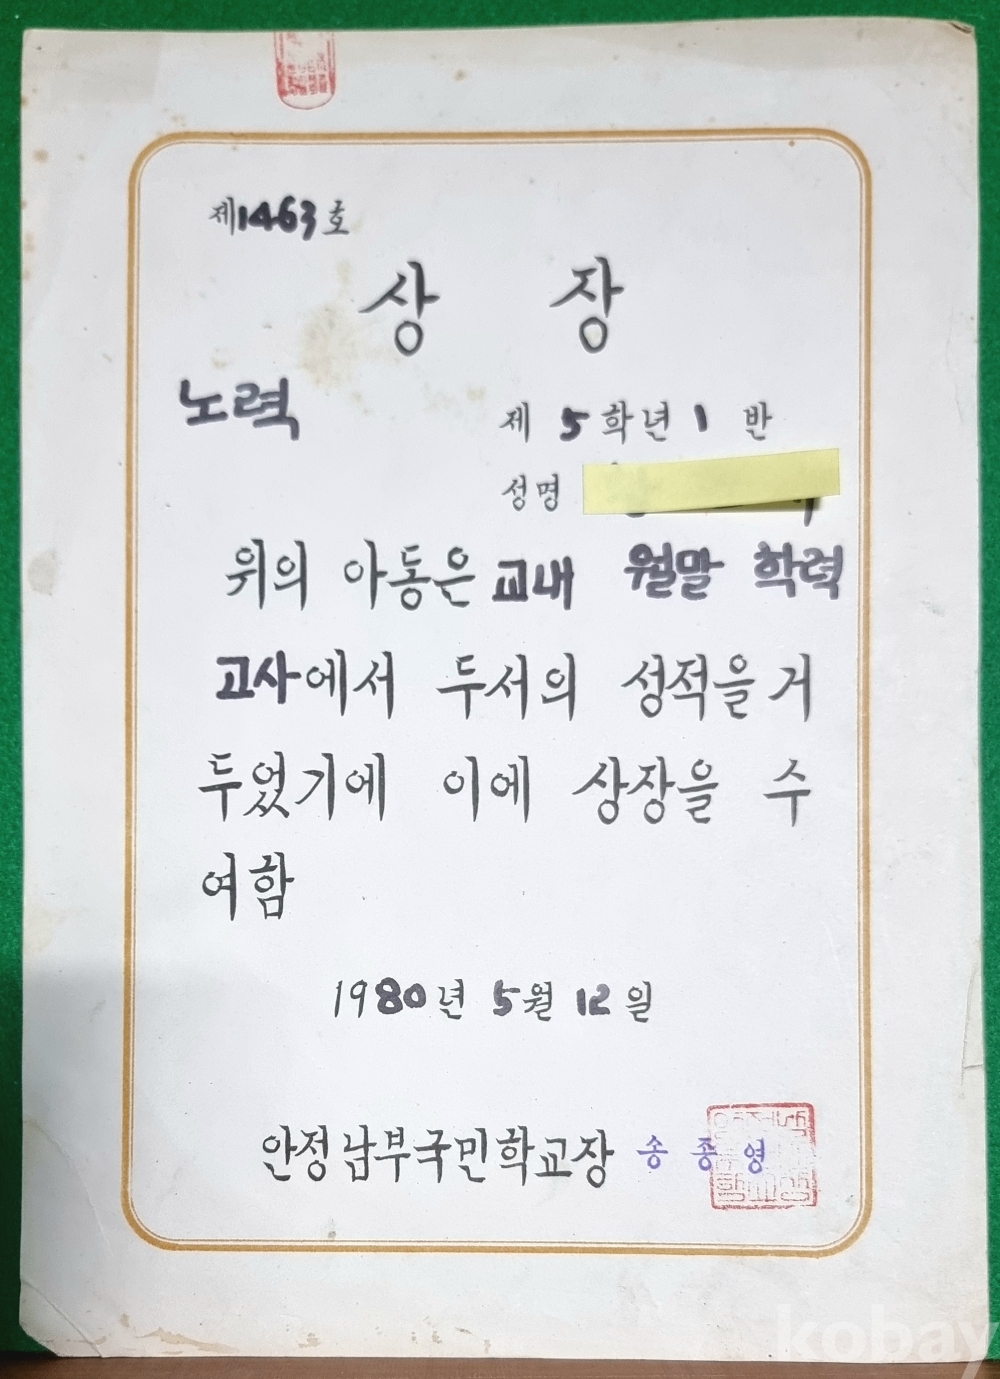 제1463호
상 장
노력
제 5 학년 1 반
성명
위의 아동은 교내 월말 학력
고사에서 두서의 성적을 거
두었기에 이에 상장을 수
여함
1980년 5월 12일
안정남부국민학교장 송종영
kobay